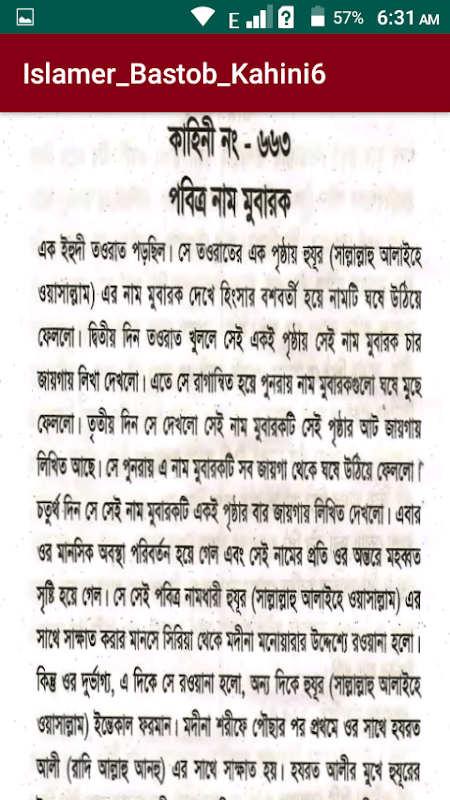 E
57% 6:31 AM
Islamer_Bastob_Kahini6
কাহিনী নং - ৬৬৩
পবিত্র নাম মুবারক
এক ইহুদী তওরাত পড়ছিল। সে তওরাতের এক পৃষ্ঠায় হুযূর (সাল্লাল্লাহু আলাইহে
ওয়াসাল্লাম) এর নাম মুবারক দেখে হিংসার বশবর্তী হয়ে নামটি ঘষে উঠিয়ে
ফেললো। দ্বিতীয় দিন তওরাত খুললে সেই একই পৃষ্ঠায় সেই নাম মুবারক চার
জায়গায় লিখা দেখলো। এতে সে রাগান্বিত হয়ে পুনরায় নাম মুবারকগুলো ঘষে মুছে
ফেললো। তৃতীয় দিন সে দেখলো সেই নাম মুবারকটি সেই পৃষ্ঠার আট জায়গায়
লিখিত আছে। সে পুনরায় এ নাম মুবারকটি সব জায়গা থেকে ঘষে উঠিয়ে ফেললো।
চতুর্থ দিন সে সেই নাম মুবারকটি একই পৃষ্ঠার বার জায়গায় লিখিত দেখলো। এবার
ওর মানসিক অবস্থা পরিবর্তন হয়ে গেল এবং সেই নামের প্রতি ওর অন্তরে মহব্বত
সৃষ্টি হয়ে গেল। সে সেই পবিত্র নামধারী হুযূর (সাল্লাল্লাহু আলাইহে ওয়াসাল্লাম) এর
সাথে সাক্ষাত করার মানসে সিরিয়া থেকে মদীনা মনোয়ারার উদ্দেশ্যে রওয়ানা হলো।
কিন্তু ওর দুর্ভাগ্য, এ দিকে সে রওয়ানা হলো, অন্য দিকে হুযূর (সাল্লাল্লাহু আলাইহে
ওয়াসাল্লাম) ইন্তেকাল ফরমান। মদীনা শরীফে পৌছার পর প্রথমে ওর সাথে হযরত
আলী (রাদি আল্লাহু আনহু) এর সাথে সাক্ষাত হয়। হযরত আলীর মুখে হুযূরের